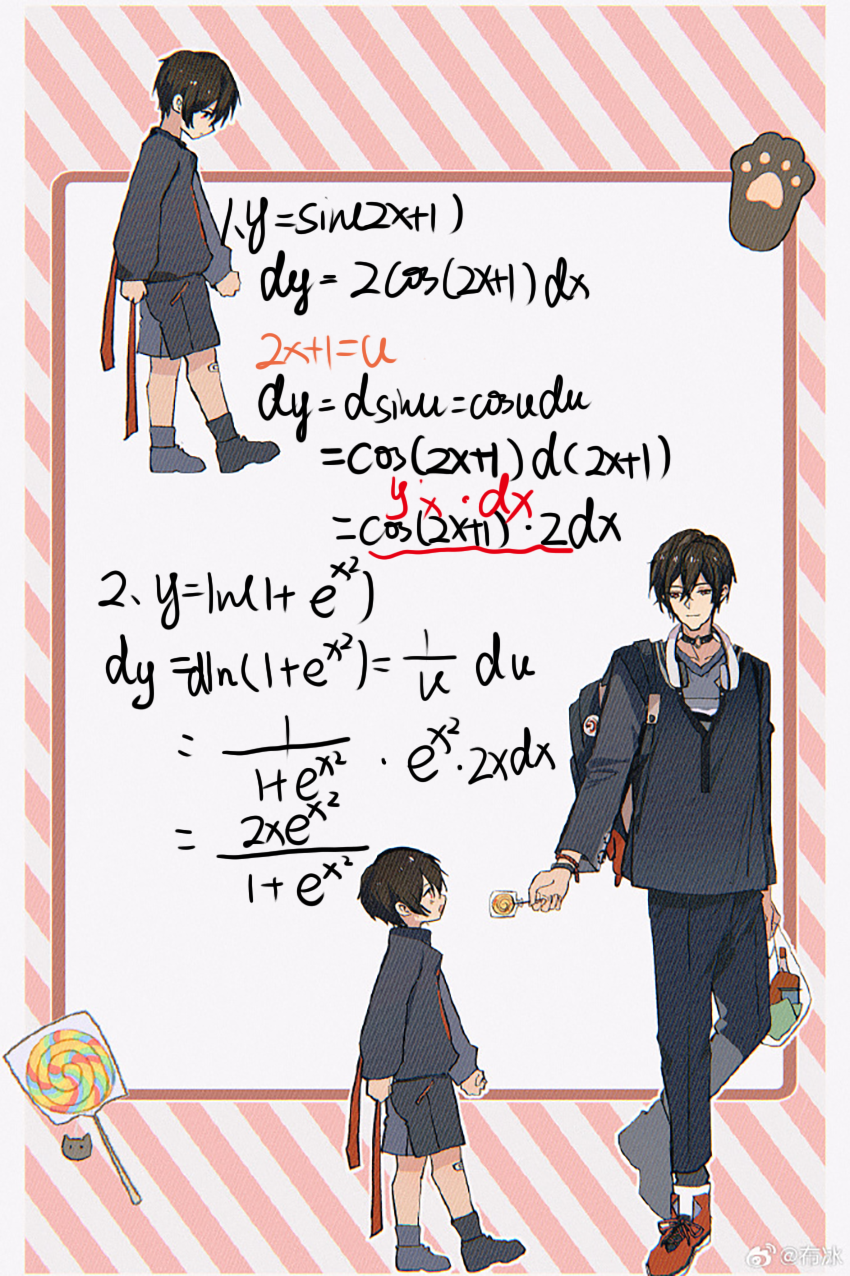 1、y=sin(2x+1)
dy=2cos(2x+1)dx
2x+1=u
dy=dsinu=cosudu
=cos(2x+1)d(2x+1)
y'x·dx
=cos(2x+1)·2dx
2、y=ln(1+e^{x^2})
dy=dln(1+e^{x^2})=\frac{1}{u} du
=\frac{1}{1+e^{x^2}}·e^{x^2}·2xdx
=\frac{2xe^{x^2}}{1+e^{x^2}}
@布冰